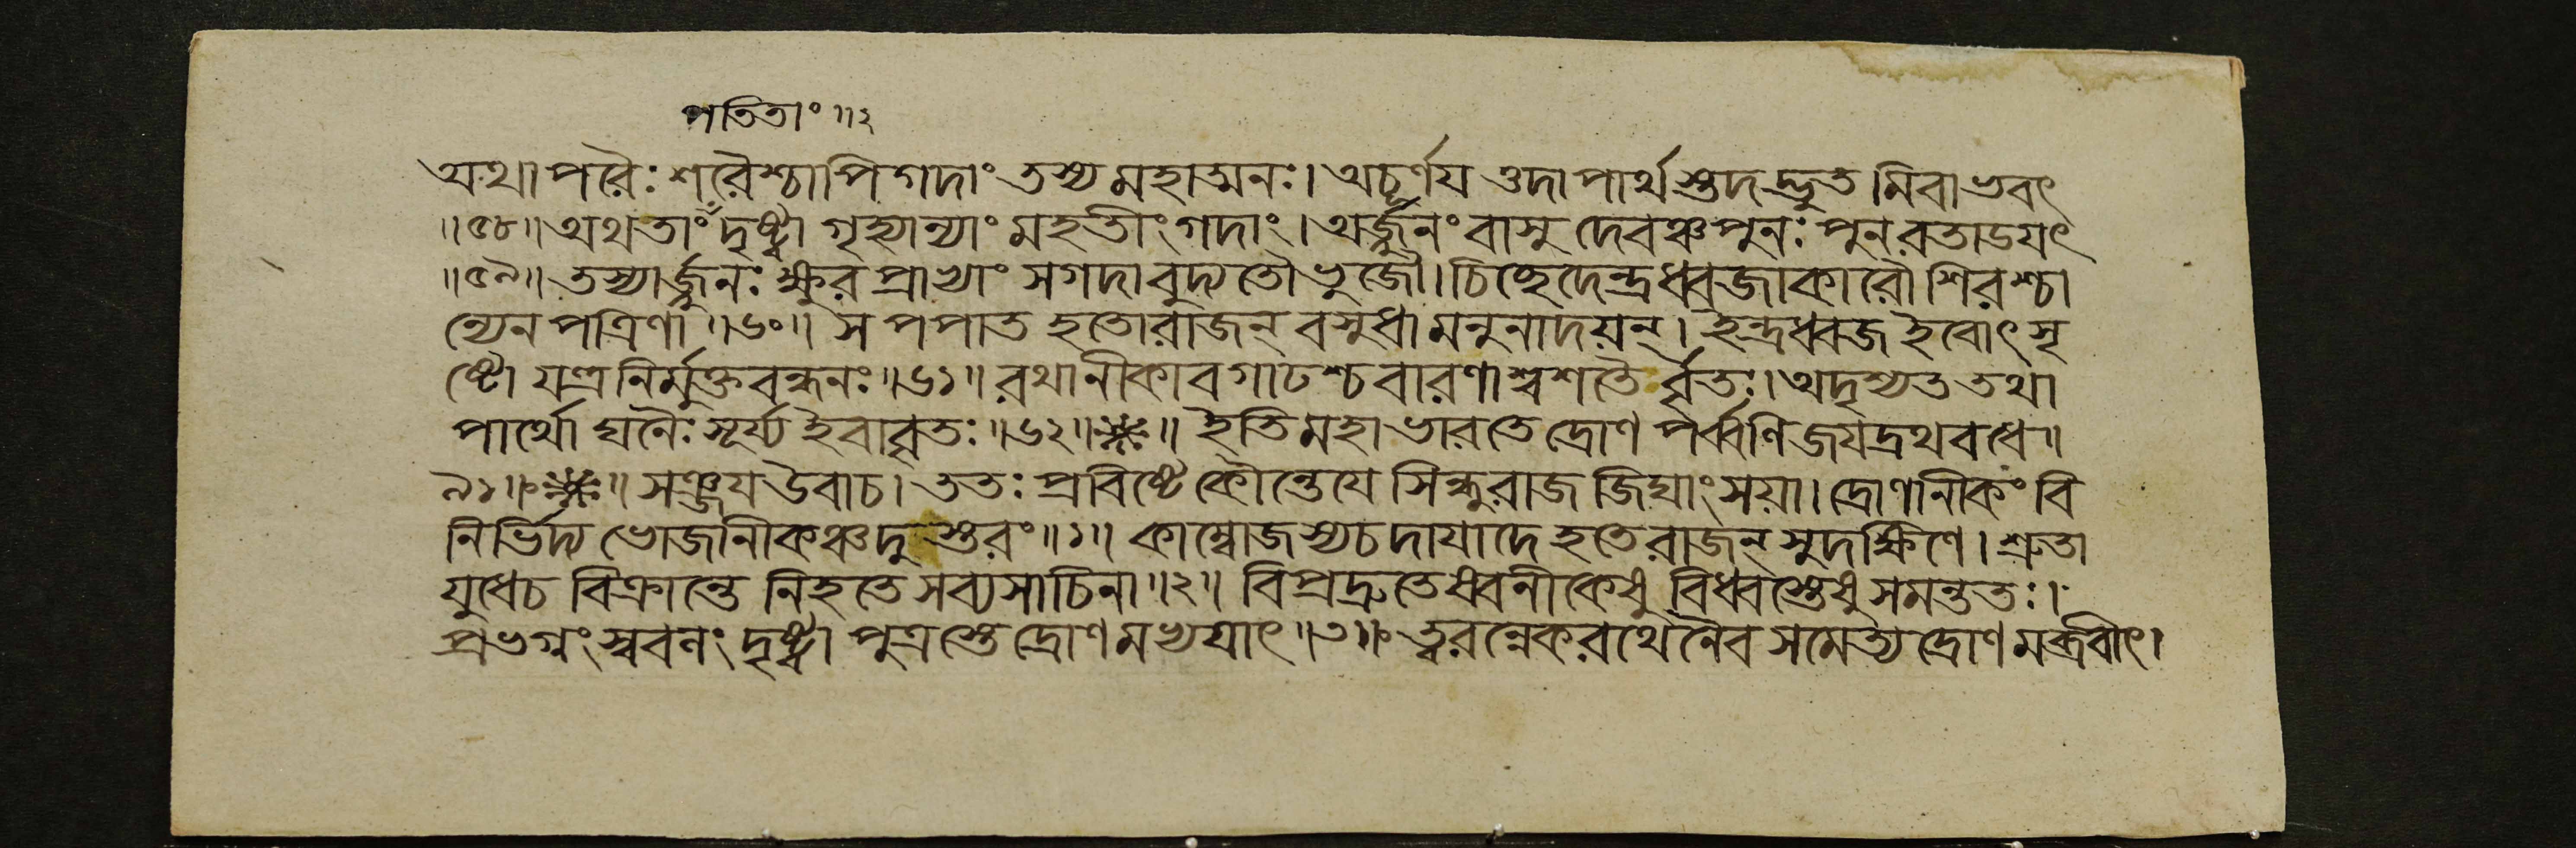 পতিতাং॥২
অথাপরৈঃ শরৈশ্চাপি গদাং তস্য মহাত্মনঃ। অচূর্ণয ত্তদা পার্থ স্তদদ্ভুত মিবাভবৎ
॥৫৮॥ অথ তাং দৃষ্ট্বা গৃহ্যান্যাং মহতীং গদাং। অর্জ্জুনং বাসুদেবঞ্চ পুনঃ পুনরতাডযৎ
॥৫৯॥ তস্যার্জ্জুনঃ ক্ষুরপ্রাখ্যাং সগদাবুদ্যতৌ ভুজৌ। চিচ্ছেদেন্দ্রধ্বজাকারৌ শিরশ্চা
ন্যেন পত্রিণা॥৬০॥ স পপাত হতো রাজন্ বসুধা মনুনাদয়ন্। ইন্দ্রধ্বজ ইবোৎসৃ
ষ্টো যন্ত্রনির্মুক্তবন্ধনঃ॥৬১॥ রথানীকাবগাঢশ্চ বারণাশ্বশতৈর্বৃতঃ। অদৃশ্যত তথা
পার্থো ঘনৈঃ সূর্য্য ইবাবৃতঃ॥৬২॥ ॥ ইতি মহাভারতে দ্রোণপর্ব্বণি জযদ্রথবধে॥
৯১॥ ॥ সঞ্জয উবাচ। ততঃ প্রবিষ্টে কৌন্তেযে সিন্ধুরাজ জিঘাংসয়া। দ্রোণানীকং বি
নির্ভিদ্য ভোজানীকঞ্চ দুস্তরং॥১॥ কাম্বোজস্য চ দাযাদে হতে রাজন্ সুদক্ষিণে। শ্রুতা
যুধে চ বিক্রান্তে নিহতে সব্যসাচিনা॥২॥ বিপ্রদ্রুতেষ্বনীকেষু বিধ্বস্তেষু সমন্ততঃ।
প্রভগ্নং স্ববলং দৃষ্ট্বা পুত্রস্তে দ্রোণমভ্যযাৎ॥৩॥ ত্বরন্নেকরথেনৈব সমেত্য দ্রোণমব্রবীৎ।